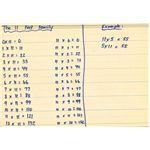 The 11 Fact Family
0 x 11 = 0
1 x 11 = 11
2 x 11 = 22
3 x 11 = 33
4 x 11 = 44
5 x 11 = 55
6 x 11 = 66
7 x 11 = 77
8 x 11 = 88
9 x 11 = 99
10 x 11 = 110
11 x 11 = 121
12 x 11 = 132
11 x 0 = 0
11 x 1 = 11
11 x 2 = 22
11 x 3 = 33
11 x 4 = 44
11 x 5 = 55
11 x 6 = 66
11 x 7 = 77
11 x 8 = 88
11 x 9 = 99
11 x 10 = 110
11 x 11 = 121
11 x 12 = 132
Example:
11 x 5 = 55
5 x 11 = 55